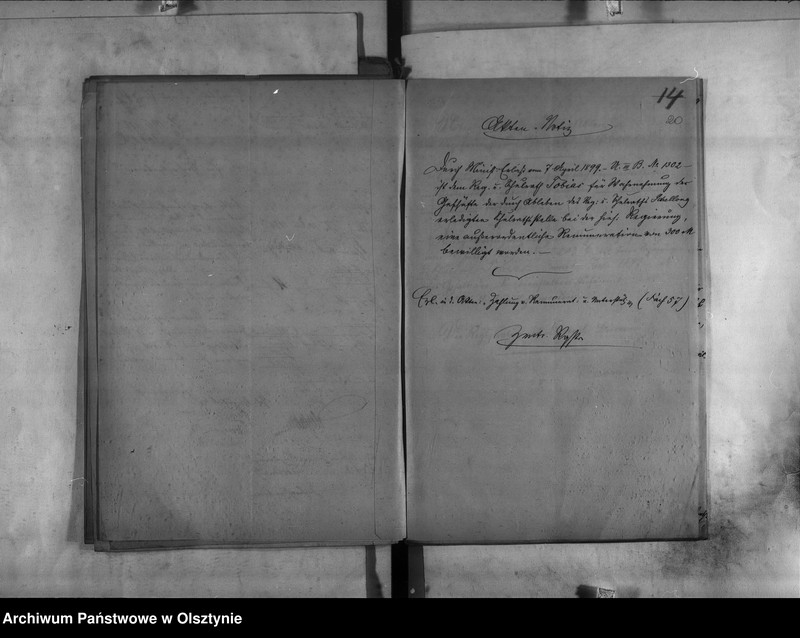 14
20
Akten-Notiz
Durch Minist. Erlaß vom 7 April 1899 - U. III B. Nr. 1302 -
ist dem Reg. u. Schulrath Tobias für Wahrnehmung der
Geschäfte der durch Ableben des Reg. u. Schulraths
erledigten Schulrathsstelle bei der hies. Regierung,
eine außerordentliche Remuneration von 300 M
bewilligt worden. -
i. d. Akten: Zahlung v. Remunerat. u. (Fach 57)
Archiwum Państwowe w Olsztynie